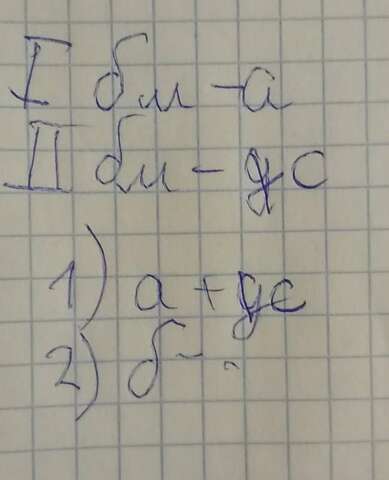 I бм - а
II бм - дс
1) а + дс
2) б - ?